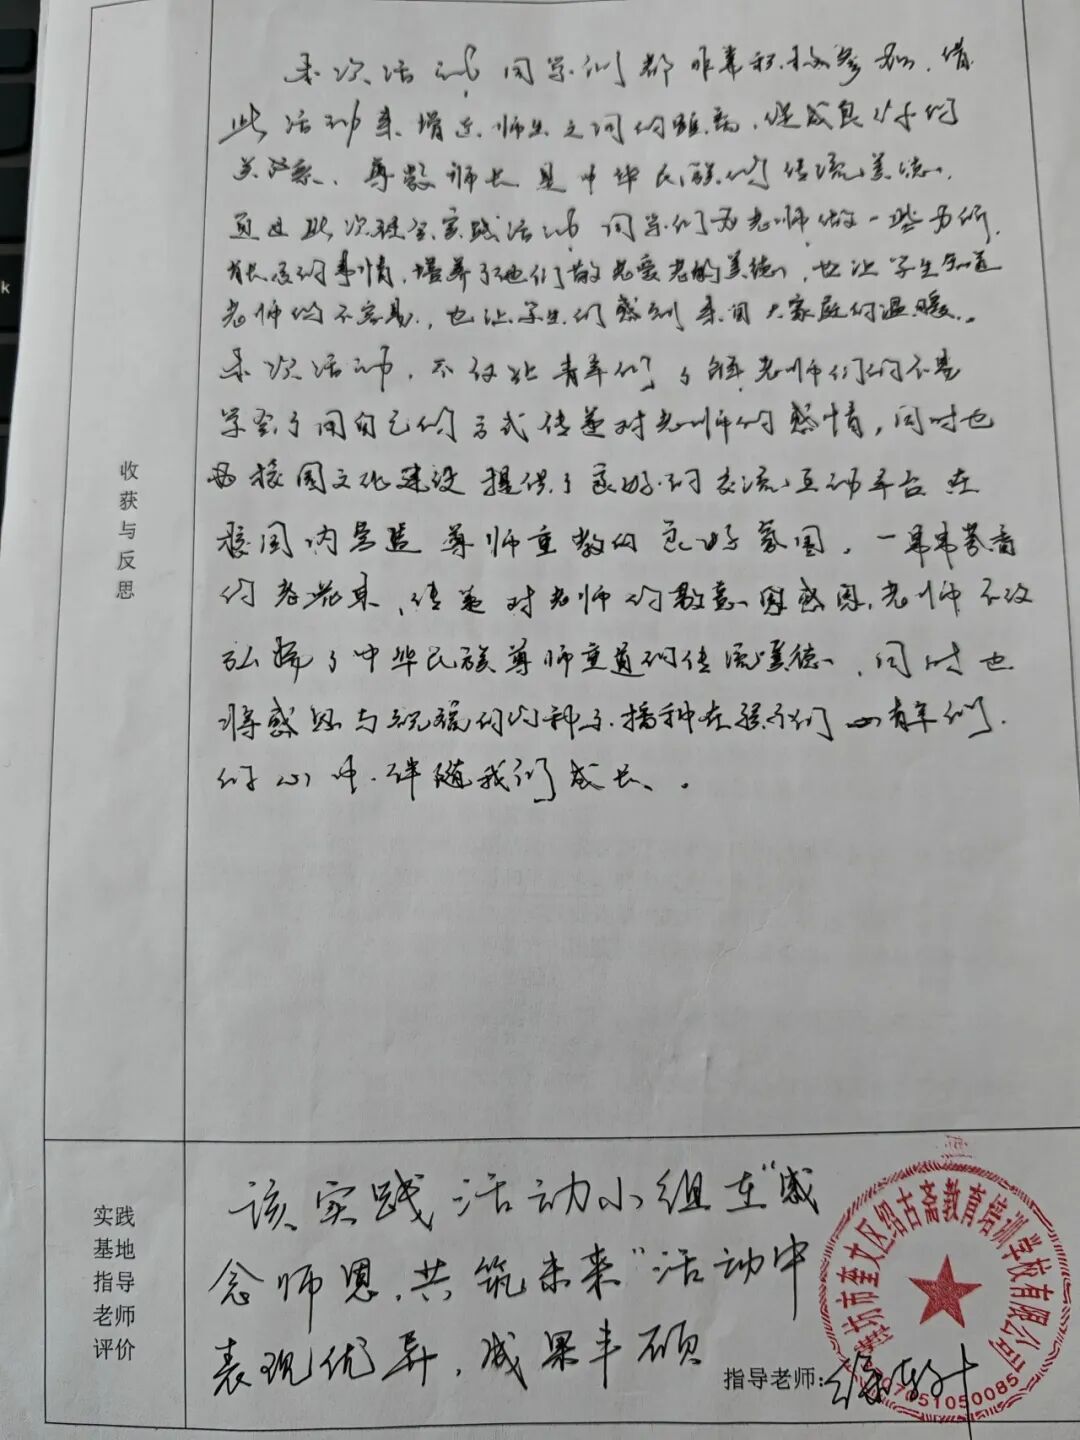 本次活动同学们都非常积极参加,借
此活动来增进师生之间的距离,促成良好的
关系、尊敬师长是中华民族的传统美德,
通过此次社会实践活动 同学们为老师做一些力所
的事情,培养了他们敬老爱老的美德,也让学生知道
老师的不容易,也让学生们感到来自大家庭的温暖。
本次活动,不仅让青年们了解老师们的不易
学会了用自己的方式传递对老师的感情,同时也
为校园文化建设提供了良好的交流互动平台 在
校园内营造尊师重教的良好氛围,一束束芬香
的花束,传递对老师的敬意感恩,老师不仅
弘扬了中华民族尊师重道的传统美德,同时也
将感恩与祝福的种子播种在孩子们 青年们
的心中.伴随我们成长。
收获与反思
实践
基地
指导
老师
评价
该实践活动小组在“感
念师恩,共筑未来”活动中
表现优异,成果丰硕
指导老师:
潍坊市奎文区绍古斋教育培训学校有限公司